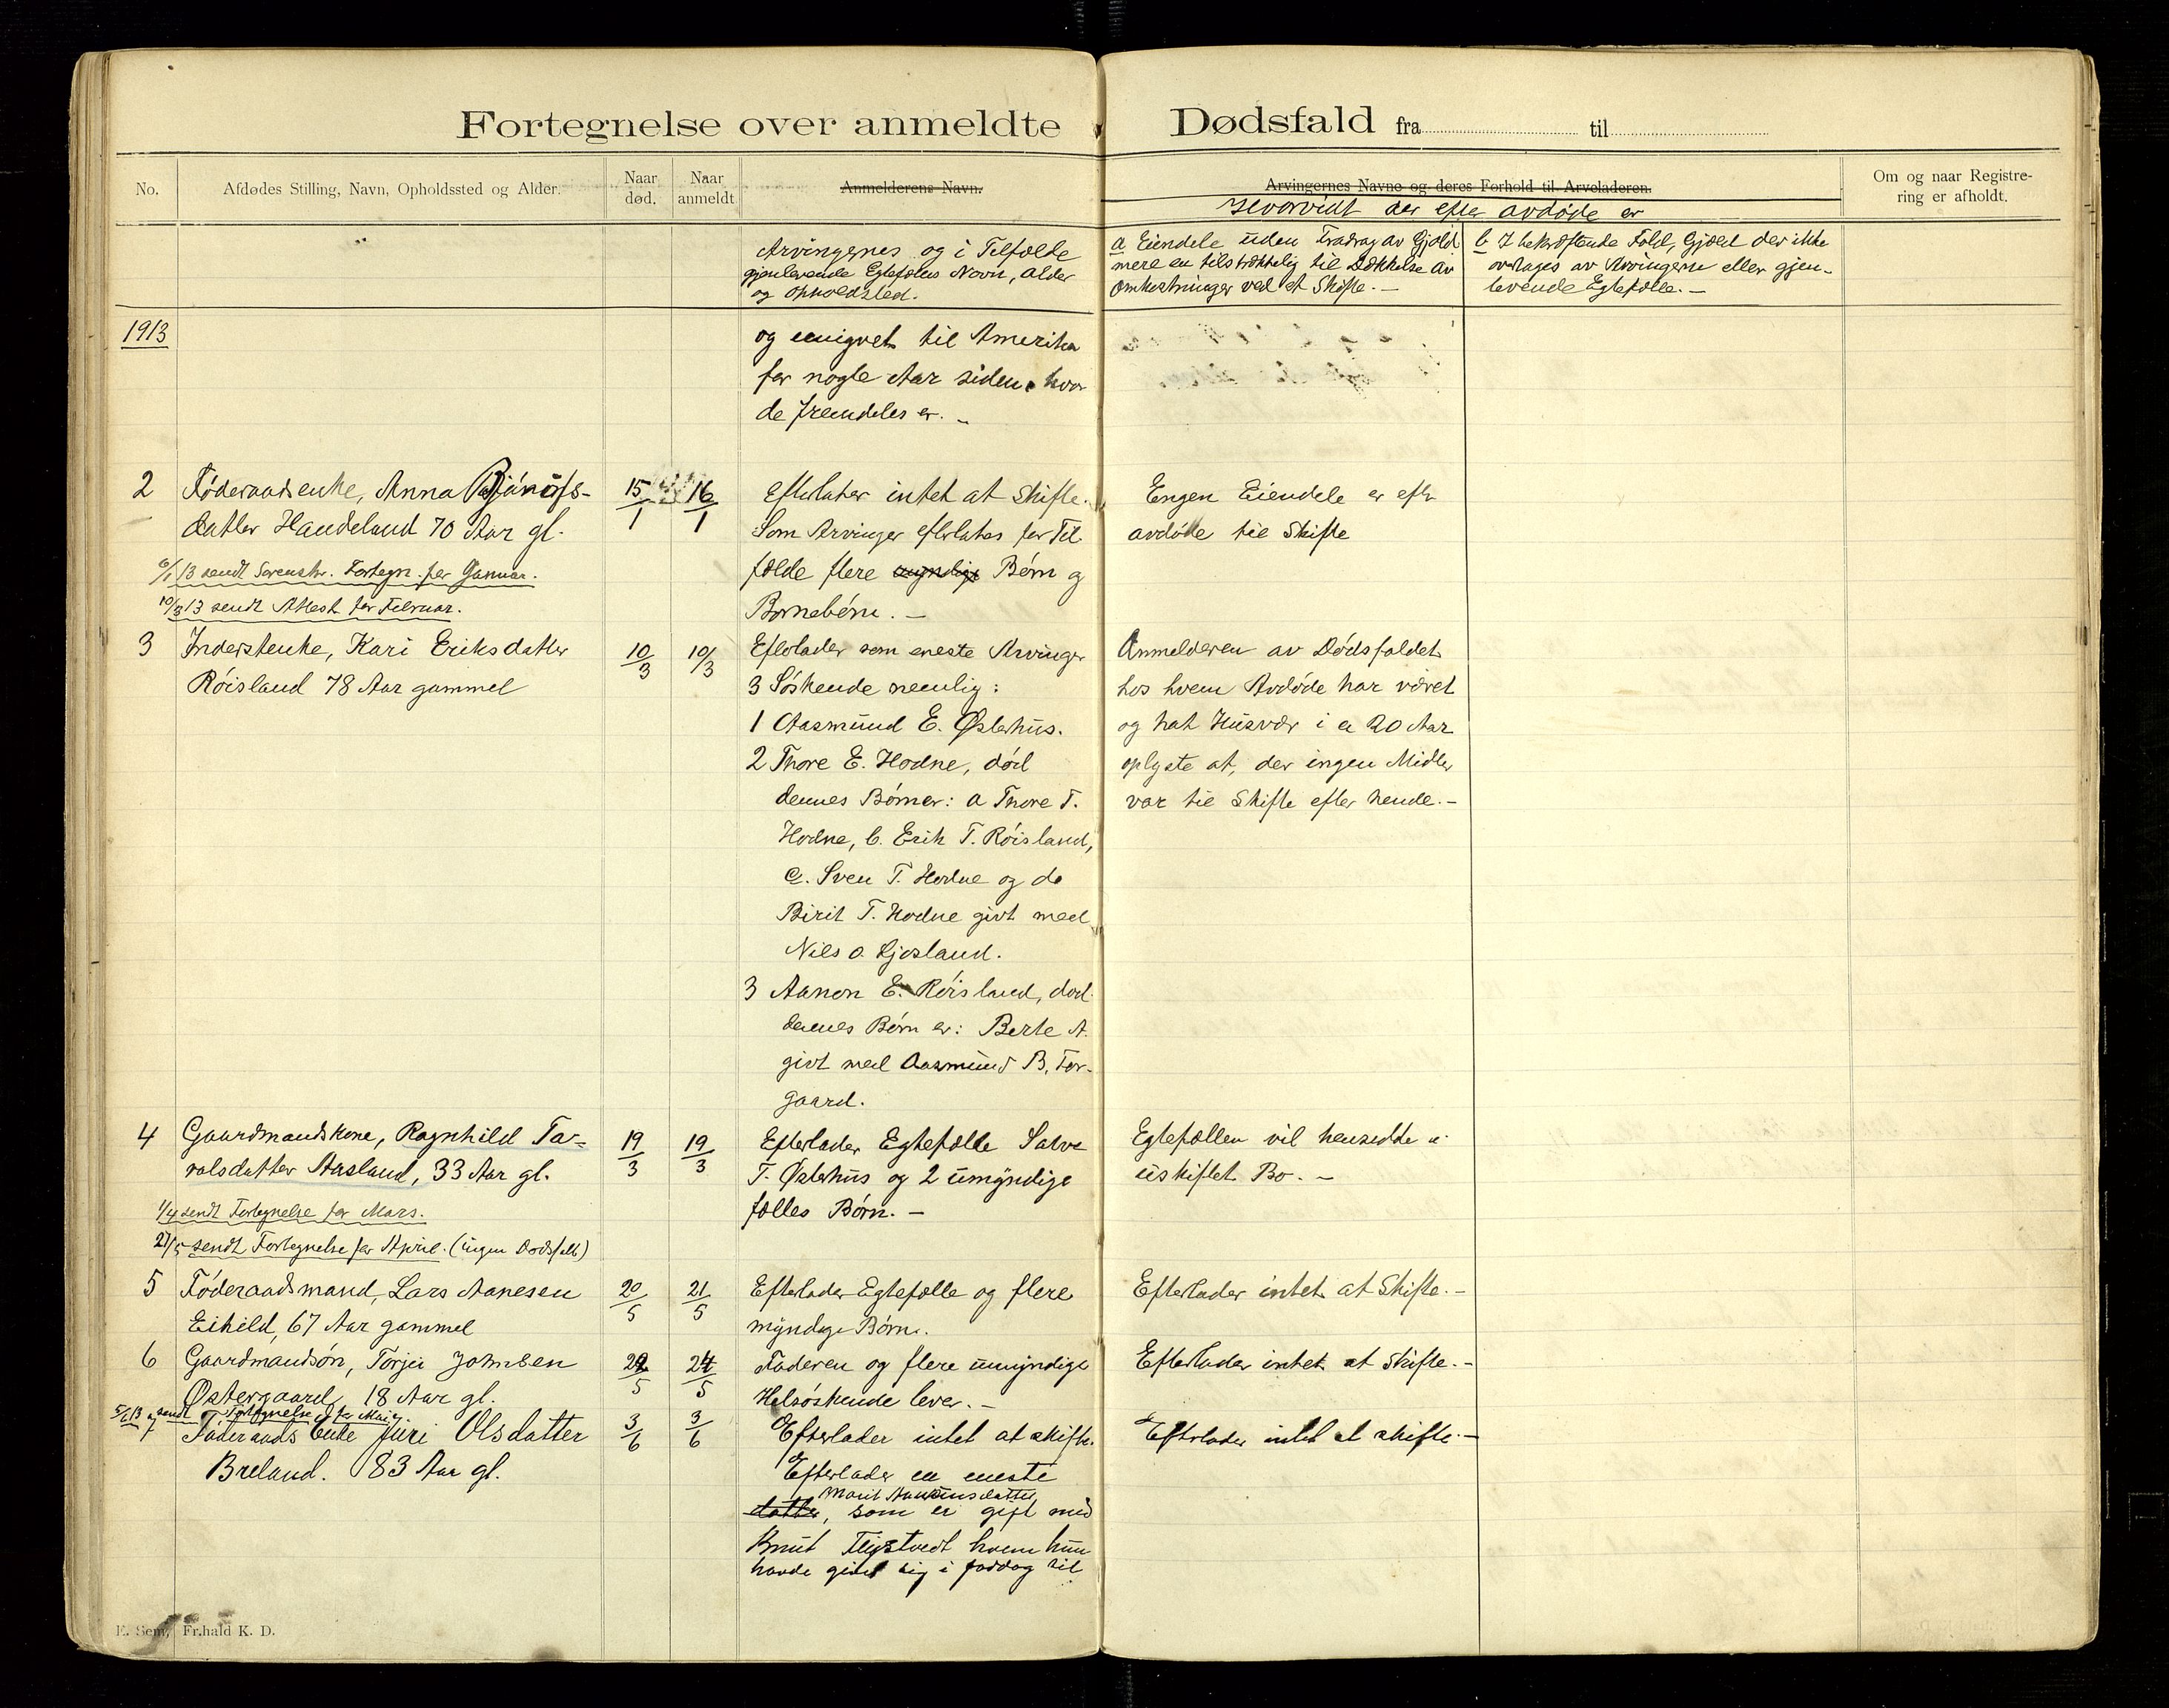 Fortegnelse over anmeldte Dødsfald fra til
No.
Afdødes Stilling, Navn, Opholdssted og Alder.
Naar død.
Naar anmeldt
Anmelderens Navn.
Arvingernes Navne og deres Forhold til Arveladeren.
Hvorvidt der efter avdøde er
Om og naar Registre-
ring er afholdt.
Arvingernes og i Tilfælde
gjenlevende Egtefælles Navn, Alder
og Opholdsted.
a Eiendele uden Fradrag av Gjæld
mere en tilstrækkelig til Dækkelse av
Omkostninger ved et Skifte. -
b I bekræftende Fald, Gjæld der ikke
overtages av Arvingerne eller gjen-
levende Egtefælle. -
1913
og emigret til Amerika
for nogle Aar siden hvor
de fremdeles er. -
2 Føderaadsenke, Anna Bjónúfs-
datter Haudeland 70 Aar gl.
15/1 16/1
Efterlater intet at skifte.
Som Arvinger efterlates for Til
fælde flere Børn og
Bornebørn. -
Engen Eiendele er eftr
avdøde til Skifte
6/1 13 sendt Sorenskr. Fortegn. for Januar.
10/3 13 sendt Attest for Februar.
3 Inderstenke, Kari Eriksdatter
Røisland 78 Aar gammel
10/3 10/3
Efterlader som eneste Arvinger
3 Søskende nemlig:
1 Aasmund E. Østerhus.
2 Thore E. Hodne, død
dennes Børn er: a Thore T.
Hodne, b. Erik T. Røisland,
c. Sven T. Hodne og d.
Birit T. Hodne givt med
Niels O. Ljosland.
3 Aanon E. Røisland, død.
dennes Børn er: Berte A.
givt med Aasmund B. For-
gaard.
Anmelderen av Dødsfaldet
hos hvem Avdøde har været
og hat Husvær i ca 20 Aar
oplyste at, der ingen Midler
var til Skifte efter hende. -
4 Gaardmandskone, Ragnhild Ta-
ralsdatter Aasland, 33 Aar gl.
19/3 19/3
Efterlader Egtefælle Salve
T. Østerhus og 2 umyndige
fælles Børn. -
Egtefællen vil hensidde i
uskiftet Bo. -
1/4 sendt Fortegnelse for Mars.
21/5 sendt Fortegnelse for April. (ingen Dødsfald)
5 Føderaadsmand, Lars Aanesen
Eikild, 67 Aar gammel
20/5 21/5
Efterlader Egtefælle og flere
myndige Børn.
Efterlader intet at Skifte. -
6 Gaardmandsøn, Torjei Johnsen
Østergaard, 18 Aar gl.
22/5 24/5
Faderen og flere umyndige
Helsøskende lever. -
Efterlader intet at Skifte. -
5/6 13 sendt Fortegnelse for Mai.
7 Føderaads Enke Juri Olsdatter
Breland. 83 Aar gl.
3/6 3/6
Efterlader intet at skifte.
Efterlader en eneste
Marit Aanensdatter
datter, som er gift med
Knut Tlystvedt hvem hun
havde givet sig i foddog til
Efterlader intet at skifte. -
E. Sem, Fr.hald K. D.